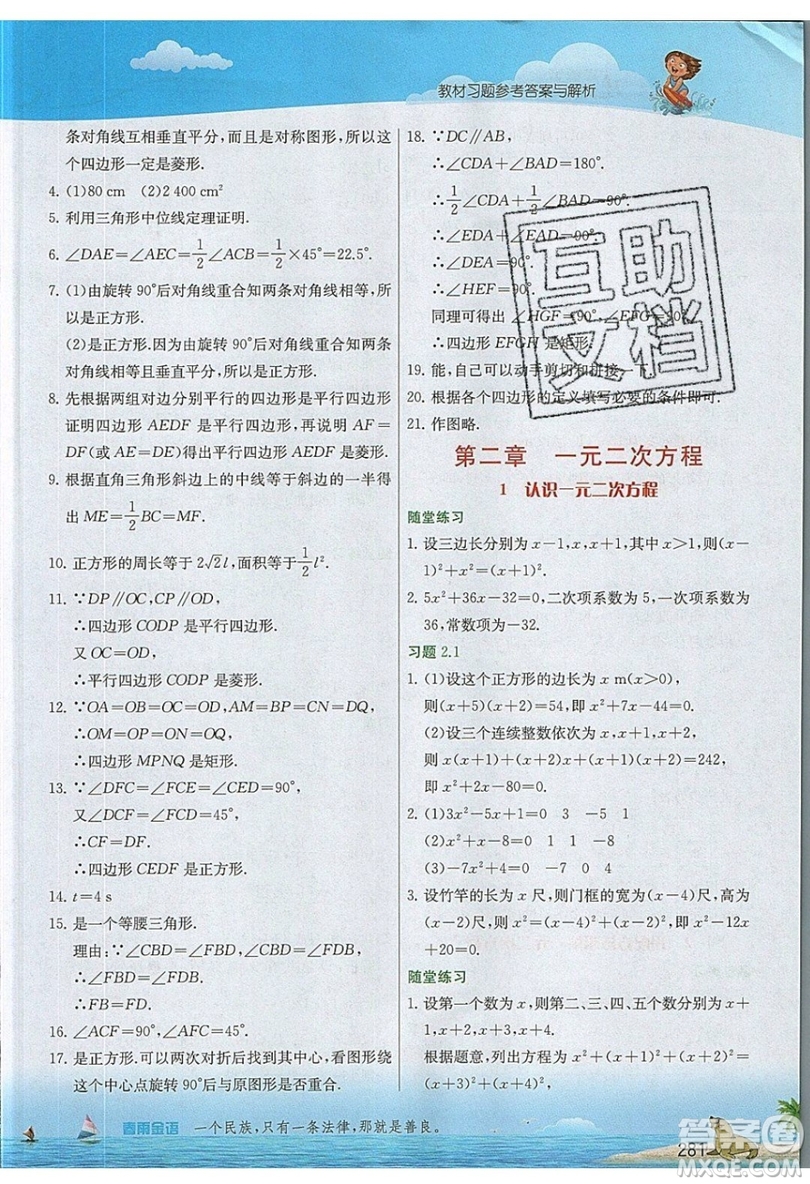 教材习题参考答案与解析
条对角线互相垂直平分,而且是对称图形,所以这
个四边形一定是菱形.
4. (1)80 cm (2)2 400 cm²
5. 利用三角形中位线定理证明.
6. ∠DAE=∠AEC=1/2∠ACB=1/2×45°=22.5°.
7. (1)由旋转 90°后对角线重合知两条对角线相等,所
以是正方形.
(2)是正方形.因为由旋转 90°后对角线重合知两条
对角线相等且垂直平分,所以是正方形.
8. 先根据两组对边分别平行的四边形是平行四边形
证明四边形 AEDF 是平行四边形,再说明 AF=
DF(或 AE=DE)得出四边形 AEDF 是菱形.
9. 根据直角三角形斜边上的中线等于斜边的一半得
出 ME=1/2BC=MF.
10. 正方形的周长等于 2√2l,面积等于1/2l².
11. ∵DP∥OC,CP∥OD,
∴四边形 CODP 是平行四边形.
又 OC=OD,
∴平行四边形 CODP 是菱形.
12. ∵OA=OB=OC=OD,AM=BP=CN=DQ,
∴OM=OP=ON=OQ,
∴四边形 MPNQ 是矩形.
13. ∵∠DFC=∠FCE=∠CED=90°,
又∠DCF=∠FCD=45°,
∴CF=DF.
∴四边形 CEDF 是正方形.
14. t=4 s
15. 是一个等腰三角形.
理由:∵∠CBD=∠FBD,∠CBD=∠FDB,
∴∠FBD=∠FDB.
∴FB=FD.
16. ∠ACF=90°,∠AFC=45°.
17. 是正方形.可以两次对折后找到其中心,看图形绕
这个中心点旋转 90°后与原图形是否重合.
18. ∵DC∥AB,
∴∠CDA+∠BAD=180°.
∴1/2∠CDA+1/2∠BAD=90°.
∴∠EDA+∠EAD=90°.
∴∠DEA=90°.
∴∠HEF=90°.
同理可得出 ∠HGF=90°,∠EFG=90°.
∴四边形 EFGH 是矩形.
19. 能,自己可以动手剪切和拼接一下.
20. 根据各个四边形的定义填写必要的条件即可.
21. 作图略.
第二章 一元二次方程
1 认识一元二次方程
随堂练习
1. 设三边长分别为 x-1,x,x+1,其中 x>1,则(x-
1)²+x²=(x+1)².
2. 5x²+36x-32=0,二次项系数为 5,一次项系数为
36,常数项为-32.
习题 2.1
1. (1)设这个正方形的边长为 x m(x>0),
则(x+5)(x+2)=54,即 x²+7x-44=0.
(2)设三个连续整数依次为 x,x+1,x+2,
则 x(x+1)+(x+2)x+(x+1)(x+2)=242,
即 x²+2x-80=0.
2. (1)3x²-5x+1=0 3 -5 1
(2)x²+x-8=0 1 1 -8
(3)-7x²+4=0 -7 0 4
3. 设竹竿的长为 x 尺,则门框的宽为(x-4)尺,高为
(x-2)尺,则(x-4)²+(x-2)²=x²,即 x²-12x
+20=0.
随堂练习
1. 设第一个数为 x,则第二、三、四、五个数分别为 x+
1,x+2,x+3,x+4.
根据题意,列出方程 x²+(x+1)²+(x+2)²=(x+
互助
文档
春雨金语 一个民族,只有一条法律,那就是善良。
281
答案圈
MXQE.COM